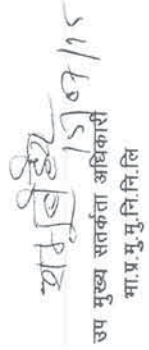 15/9/15
उप मुख्य सतर्कता अधिकारी
भा.प्र.मु.मु.नि.नि.लि